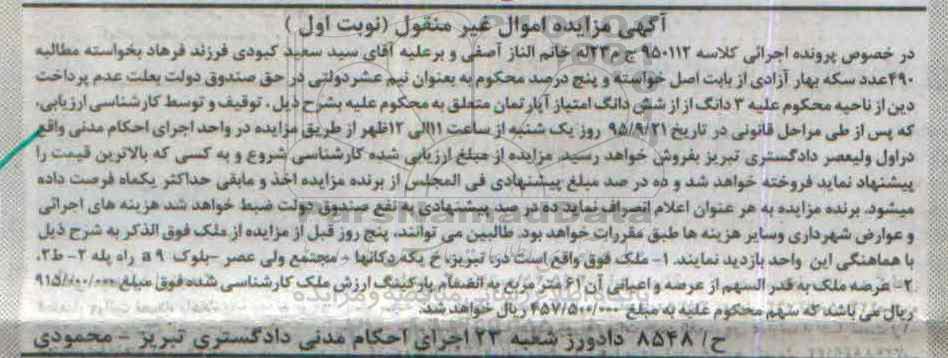 آگهی مزایده اموال غیر منقول (نوبت اول)
در خصوص پرونده اجرائی کلاسه ۹۵۰۱۱۲ ج م۲۳له خانم الناز آصفی و برعلیه آقای سید سعید کبودی فرزند فرهاد بخواسته مطالبه
۴۹۰عدد سکه بهار آزادی از بابت اصل خواسته و پنج درصد محکوم به بعنوان نیم عشر دولتی در حق صندوق دولت بعلت عدم پرداخت
دین از ناحیه محکوم علیه ۳ دانگ از از شش دانگ امتیاز آپارتمان متعلق به محکوم علیه بشرح ذیل ، توقیف و توسط کارشناسی ارزیابی،
که پس از طی مراحل قانونی در تاریخ ۹۵/۹/۲۱ روز یک شنبه از ساعت ۱۱الی ۱۲ظهر از طریق مزایده در واحد اجرای احکام مدنی واقع
دراول ولیعصر دادگستری تبریز بفروش خواهد رسید. مزایده از مبلغ ارزیابی شده کارشناسی شروع و به کسی که بالاترین قیمت را
پیشنهاد نماید فروخته خواهد شد و ده در صد مبلغ پیشنهادی فی المجلس از برنده مزایده اخذ و مابقی حداکثر یکماه فرصت داده
میشود. برنده مزایده به هر عنوان اعلام انصراف نماید ده در صد پیشنهادی به نفع صندوق دولت ضبط خواهد شد هزینه های اجرائی
و عوارض شهرداری وسایر هزینه ها طبق مقررات خواهد بود. طالبین می توانند، پنج روز قبل از مزایده از ملک فوق الذکر به شرح ذیل
با هماهنگی این واحد بازدید نمایند. ۱- ملک فوق واقع است در: تبریز، خ یکه دکانها - مجتمع ولی عصر -بلوک a ۹ راه پله ۲- ط۲.
۲- عرصه ملک به قدر السهم از عرصه و اعیانی آن ۶۱ متر مربع به انضمام پارکینگ ارزش ملک کارشناسی شده فوق مبلغ ۹۱۵/۰۰۰/۰۰۰
ریال می باشد که سهم محکوم علیه به مبلغ ۴۵۷/۵۰۰/۰۰۰ ریال خواهد شد.
ح/ ۸۵۴۸ دادورز شعبه ۲۳ اجرای احکام مدنی دادگستری تبریز - محمودی
ParsNamadData